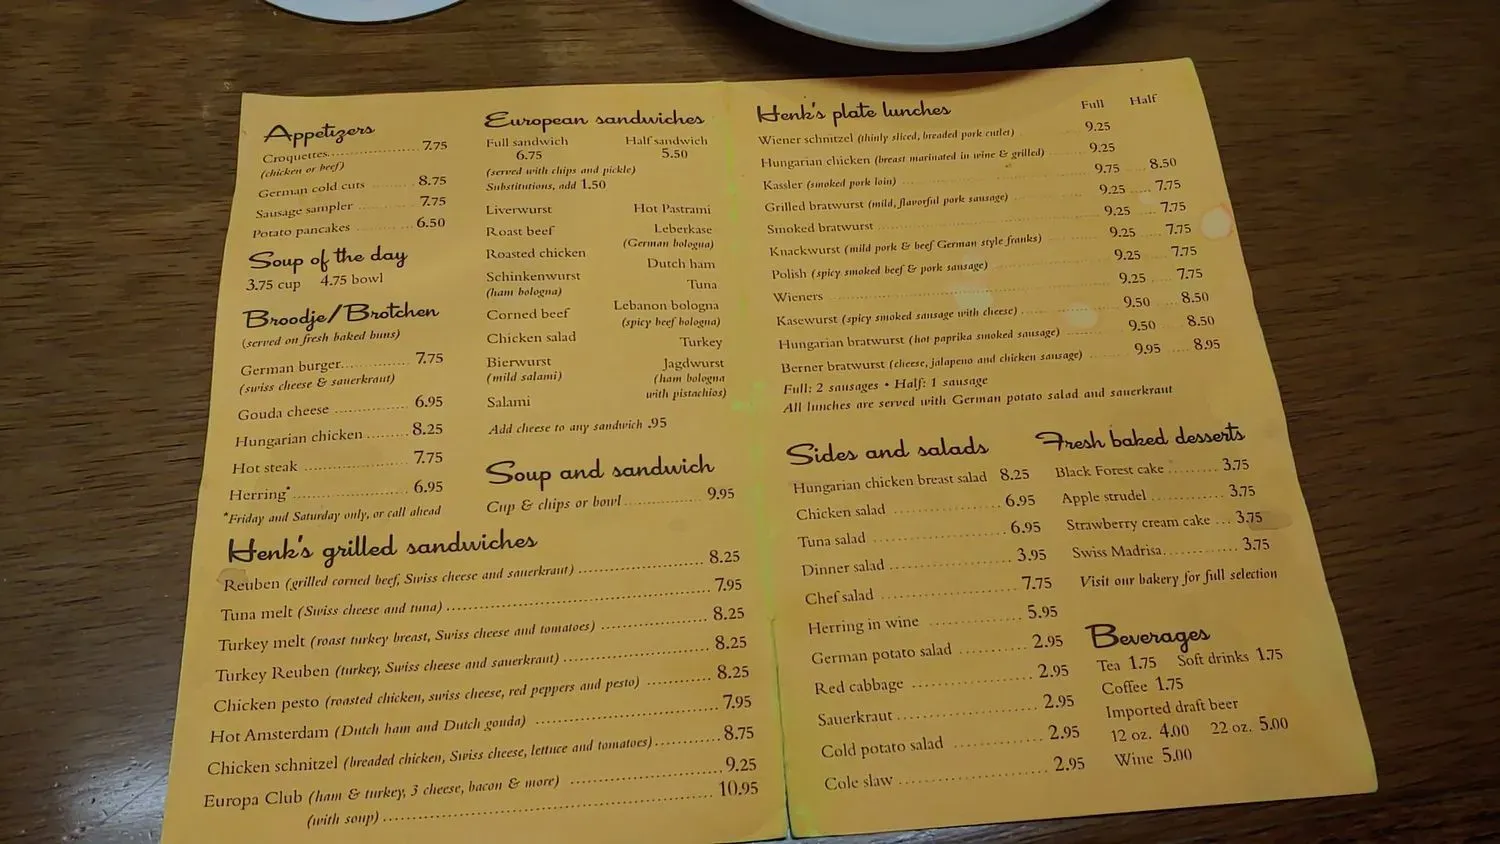 Appetizers
Croquettes 7.75
(chicken or beef)
German cold cuts 8.75
Sausage sampler 7.75
Potato pancakes 6.50
Soup of the day
3.75 cup 4.75 bowl
Broodje/Brotchen
(served on fresh baked buns)
German burger 7.75
(swiss cheese & sauerkraut)
Gouda cheese 6.95
Hungarian chicken 8.25
Hot steak 7.75
Herring* 6.95
*Friday and Saturday only, or call ahead
European sandwiches
Full sandwich Half sandwich
6.75 5.50
(served with chips and pickle)
Substitutions, add 1.50
Liverwurst
Roast beef
Roasted chicken
Schinkenwurst
(ham bologna)
Corned beef
Chicken salad
Bierwurst
(mild salami)
Salami
Hot Pastrami
Leberkase
(German bologna)
Dutch ham
Tuna
Lebanon bologna
(spicy beef bologna)
Turkey
Jagdwurst
(ham bologna
with pistachios)
Add cheese to any sandwich .95
Soup and sandwich
Cup & chips or bowl 9.95
Henk's grilled sandwiches
Reuben (grilled corned beef, Swiss cheese and sauerkraut) 8.25
Tuna melt (Swiss cheese and tuna) 7.95
Turkey melt (roast turkey breast, Swiss cheese and tomatoes) 8.25
Turkey Reuben (turkey, Swiss cheese and sauerkraut) 8.25
Chicken pesto (roasted chicken, swiss cheese, red peppers and pesto) 8.25
Hot Amsterdam (Dutch ham and Dutch gouda) 7.95
Chicken schnitzel (breaded chicken, Swiss cheese, lettuce and tomatoes) 8.75
Europa Club (ham & turkey, 3 cheese, bacon & more) 9.25
(with soup) 10.95
Henk's plate lunches Full Half
Wiener schnitzel (thinly sliced, breaded pork cutlet) 9.25
Hungarian chicken (breast marinated in wine & grilled) 9.25
Kassler (smoked pork loin) 9.75 8.50
Grilled bratwurst (mild, flavorful pork sausage) 9.25 7.75
Smoked bratwurst 9.25 7.75
Knackwurst (mild pork & beef German style franks) 9.25 7.75
Polish (spicy smoked beef & pork sausage) 9.25 7.75
Wieners 9.25 7.75
Kasewurst (spicy smoked sausage with cheese) 9.50 8.50
Hungarian bratwurst (hot paprika smoked sausage) 9.50 8.50
Berner bratwurst (cheese, jalapeno and chicken sausage) 9.95 8.95
Full: 2 sausages • Half: 1 sausage
All lunches are served with German potato salad and sauerkraut
Sides and salads
Hungarian chicken breast salad 8.25
Chicken salad 6.95
Tuna salad 6.95
Dinner salad 3.95
Chef salad 7.75
Herring in wine 5.95
German potato salad 2.95
Red cabbage 2.95
Sauerkraut 2.95
Cold potato salad 2.95
Cole slaw 2.95
Fresh baked desserts
Black Forest cake 3.75
Apple strudel 3.75
Strawberry cream cake 3.75
Swiss Madrisa 3.75
Visit our bakery for full selection
Beverages
Tea 1.75 Soft drinks 1.75
Coffee 1.75
Imported draft beer
12 oz. 4.00 22 oz. 5.00
Wine 5.00